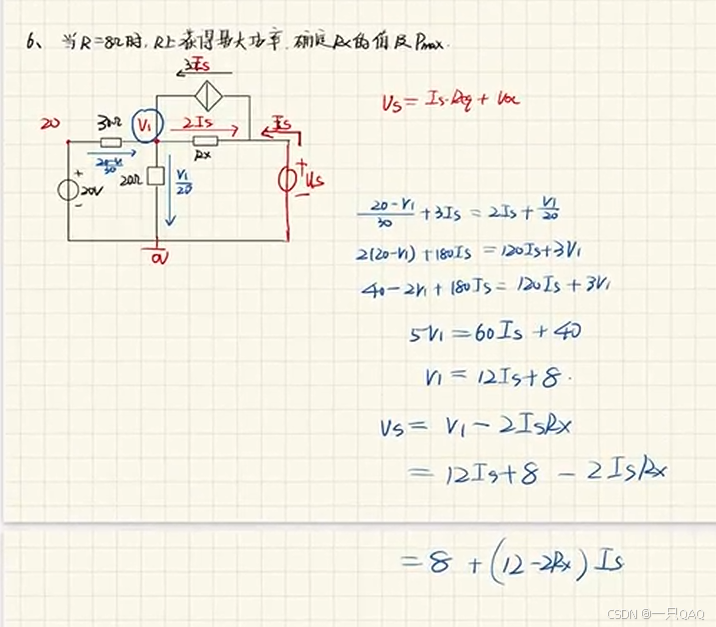 6、当R=8Ω时,R上获得最大功率.确定Rx的值及Pmax.
3Is
Us = Is·Req + Uoc
20
30Ω
V1
2Is
Is
Rx
20-V1/30
20Ω
V1/20
+
20V
-
+
Us
-
0V
20-V1/30 + 3Is = 2Is + V1/20
2(20-V1) + 180Is = 120Is + 3V1
40 - 2V1 + 180Is = 120Is + 3V1
5V1 = 60Is + 40
V1 = 12Is + 8.
Us = V1 - 2IsRx
= 12Is + 8 - 2IsRx
= 8 + (12-2Rx) Is
CSDN @一只QAQ